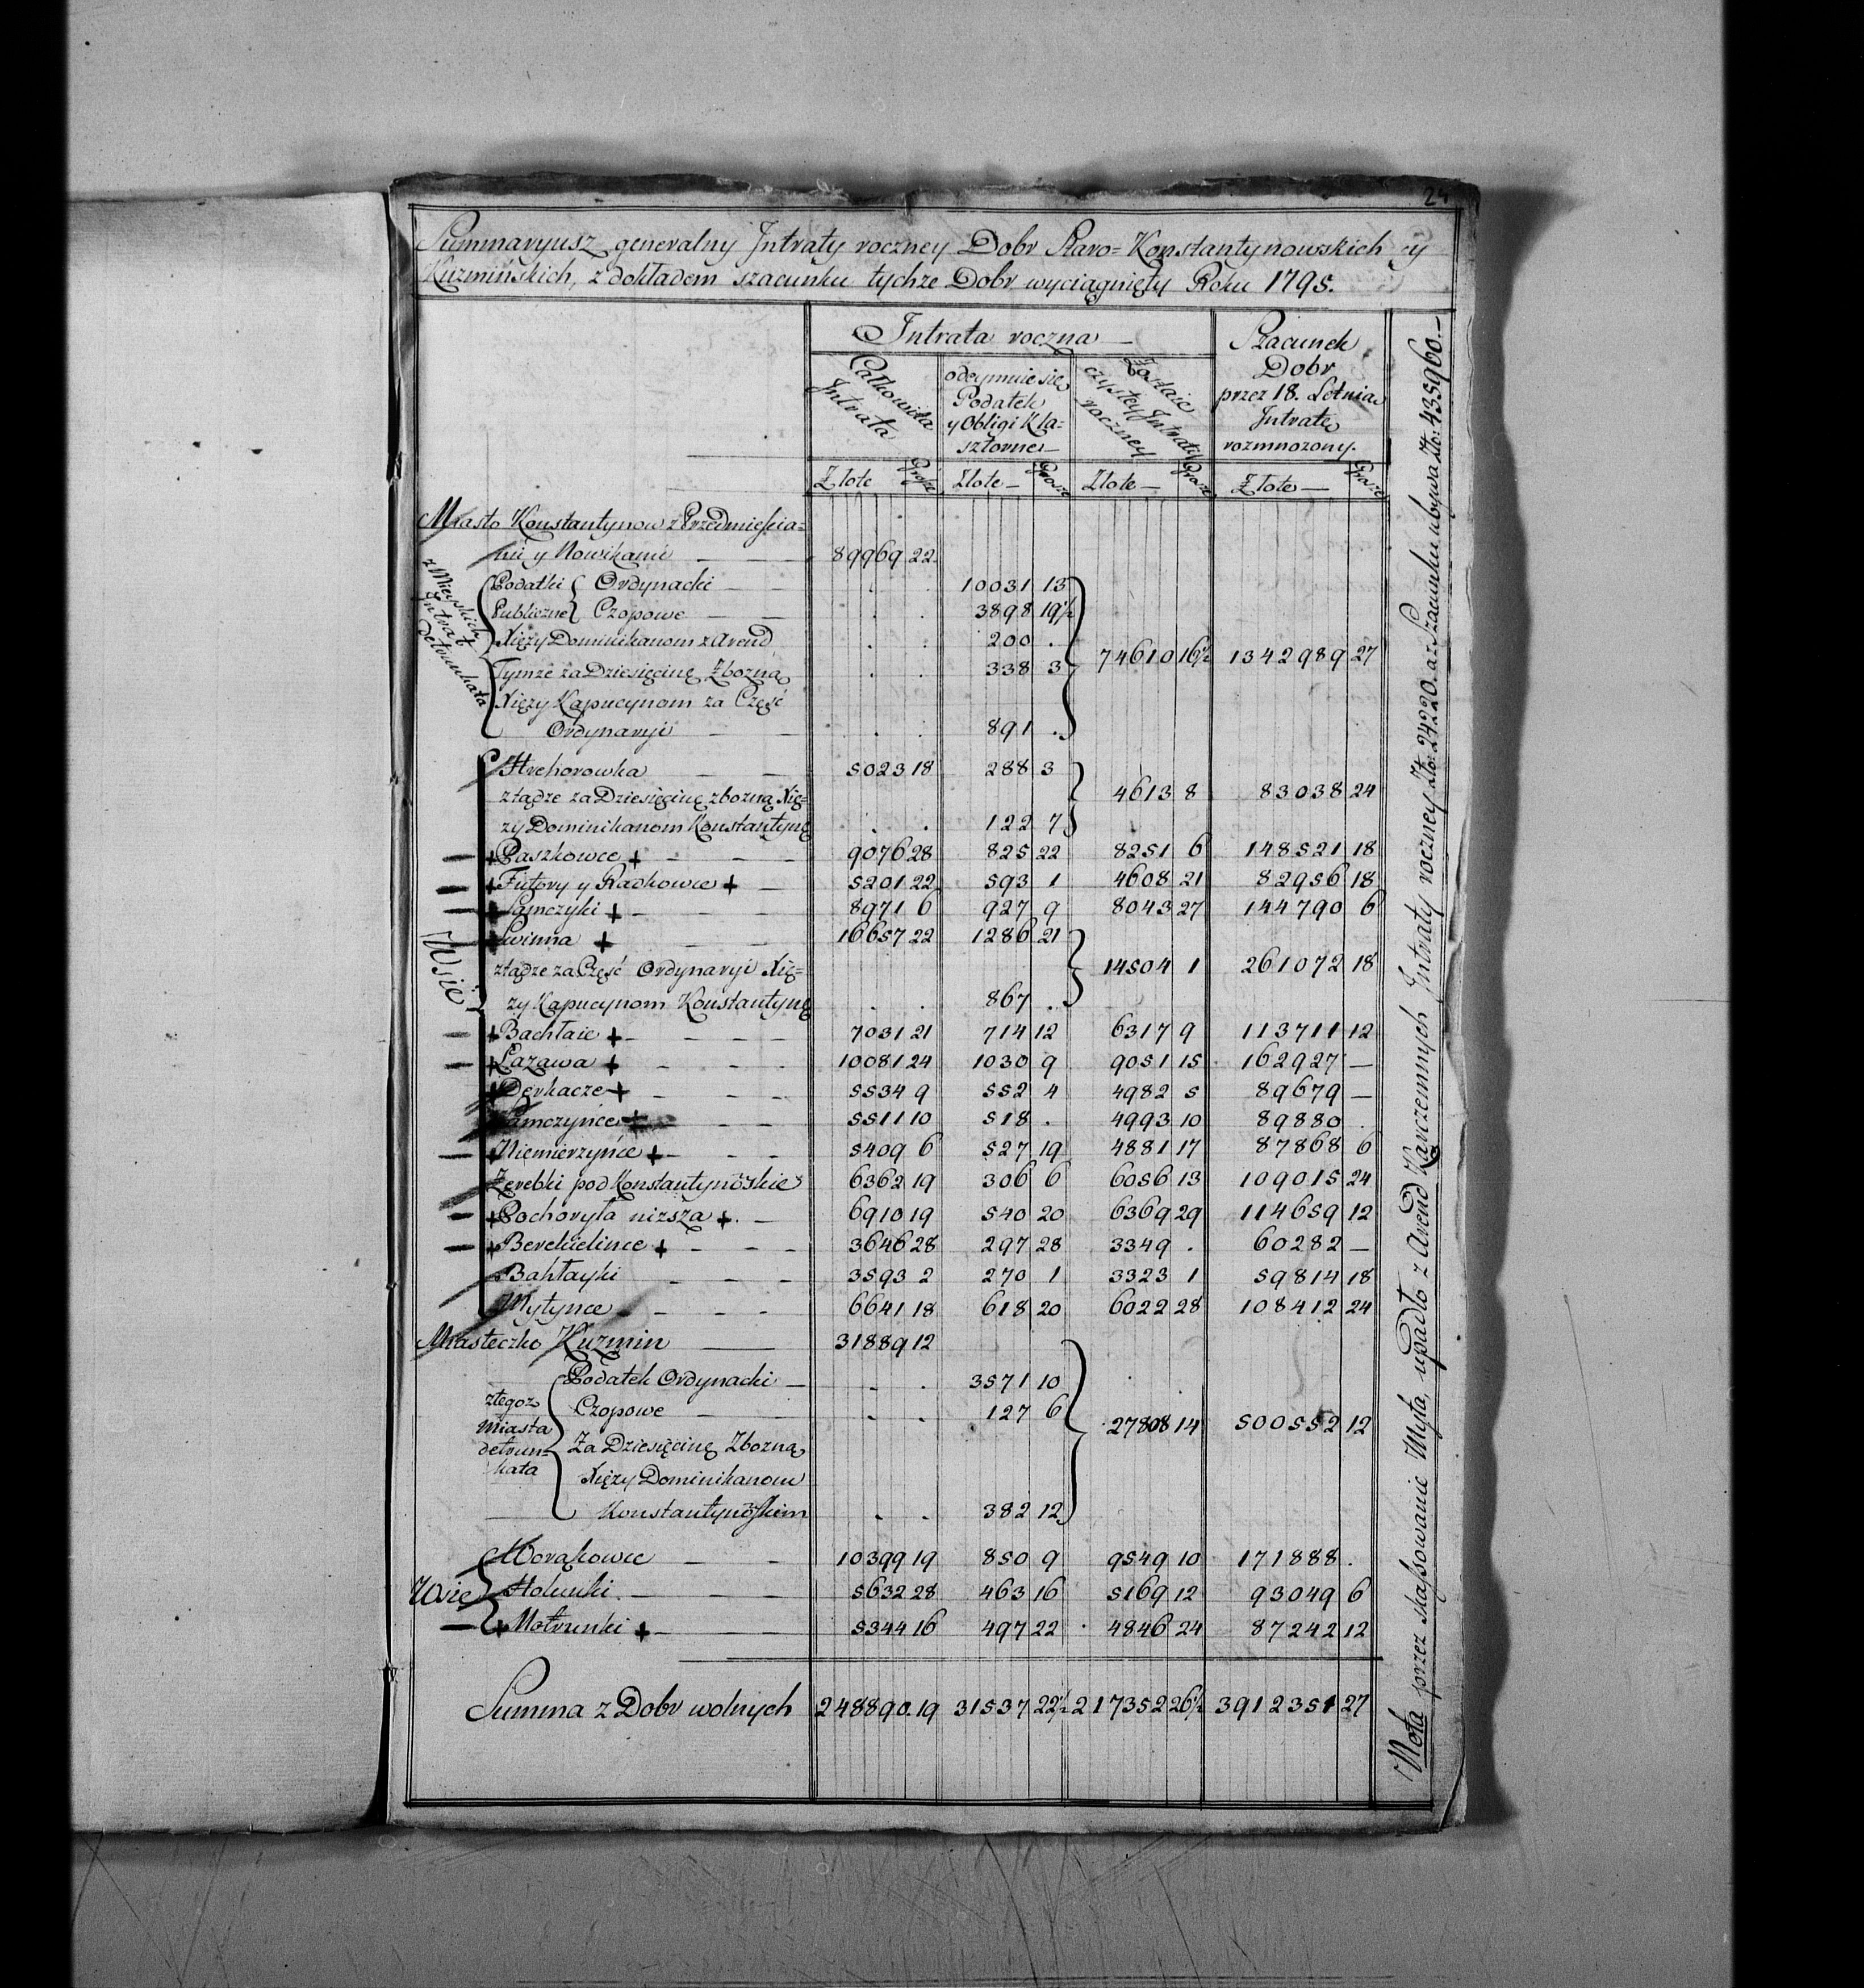 24
Summaryusz generalny Intraty roczney Dobr Staro=Konstantynowskich y
Kuzmińskich, z dokładem szacunku tychże Dobr wyciągnięty Roku 1795.
Intrata roczna
Szacunek
Dobr
przez 18. Letnią
Intratę
rozmnożony.
Całkowita
Intrata
odeymuie się
Podatek
y Obligi Kla=
sztorne
Zostaie
czystey Intraty
roczney
Złote Grosze Złote Grosze Złote Grosze Złote Grosze
Miasto Konstantynow z Przedmieścia=
mi y Nowikami 89969 22
z Mieyskich
Intrat
detrunkata
Podatki Ordynacki 10031 13
Publiczne Czopowe 3898 19½
Xięży Dominikanom z Arend 200 .
74610 16½ 1342989 27
Tymże za Dziesięcinę Zbożną 338 3
Xięży Kapucynom za Część
Ordynaryi 891 .
Wsie
Hrehorowka 5023 18 288 3
ztądże za Dziesięcinę zbożną Xię= 4613 8 83038 24
ży Dominikanom Konstantynō 122 7
Paszkowce 9076 28 825 22 8251 6 148521 18
Futory y Radkowce 5201 22 593 1 4608 21 82956 18
Samczyki 8971 6 927 9 8043 27 144790 6
Swinna 16657 22 1286 21
ztądże za Część Ordynaryi Xię= 14504 1 261072 18
ży Kapucynom Konstantynō 867 .
Bachłaie 7031 21 714 12 6317 9 113711 12
Łazawa 10081 24 1030 9 9051 15 162927 —
Derkacze 5534 9 552 4 4982 5 89679 —
Samczyńce 5511 10 518 . 4993 10 89880 .
Niemierzyńce 5409 6 527 19 4881 17 87868 6
Zerebki pod Konstantynōskie 6362 19 306 6 6056 13 109015 24
Pochoryła niższa 6910 19 540 20 6369 29 114659 12
Berehelince 3646 28 297 28 3349 . 60282 —
Bahłayki 3593 2 270 1 3323 1 59814 18
Mytynce 6641 18 618 20 6022 28 108412 24
Miasteczko Kuzmin 31889 12
ztegoż
Miasta
detrun=
kata
Podatek Ordynacki 3571 10
Czopowe 127 6
27808 14 500552 12
Za Dziesięcinę Zbożną
Xięży Dominikanom
Konstantynōskiem 382 12
Wsie
Worakowce 10399 19 850 9 9549 10 171888 .
Hołunki 5632 28 463 16 5169 12 93049 6
Motrunki 5344 16 497 22 4846 24 87242 12
Summa z Dobr wolnych 248890 19 31537 22½ 217352 26½ 3912351 27
Nota przez skassowanie Myta, upadło z Arend Karczemnych Intraty roczney Zło: 24220. a z Szacunku ubywa Zło: 435960.